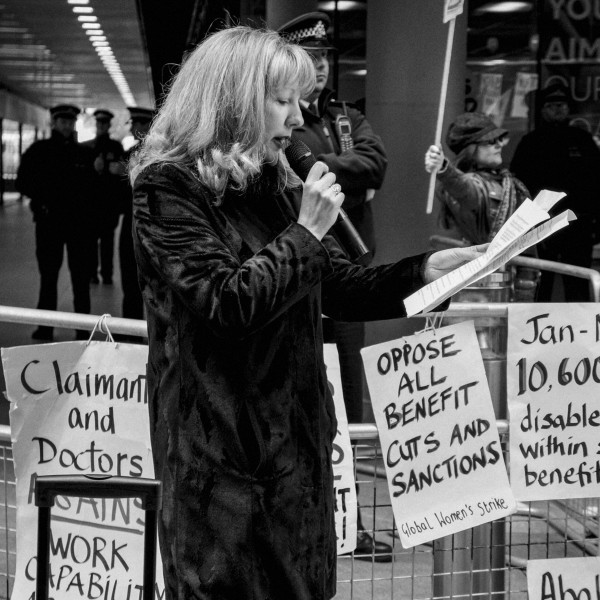 YOU
AIM
OUR
Claimant
and
Doctors
AGAINS
WORK
CAPABILIT
OPPOSE
ALL
BENEFIT
CUTS AND
SANCTIONS
Global Women's Strike
Jan-N
10,600
disable
within
benefit
Abol